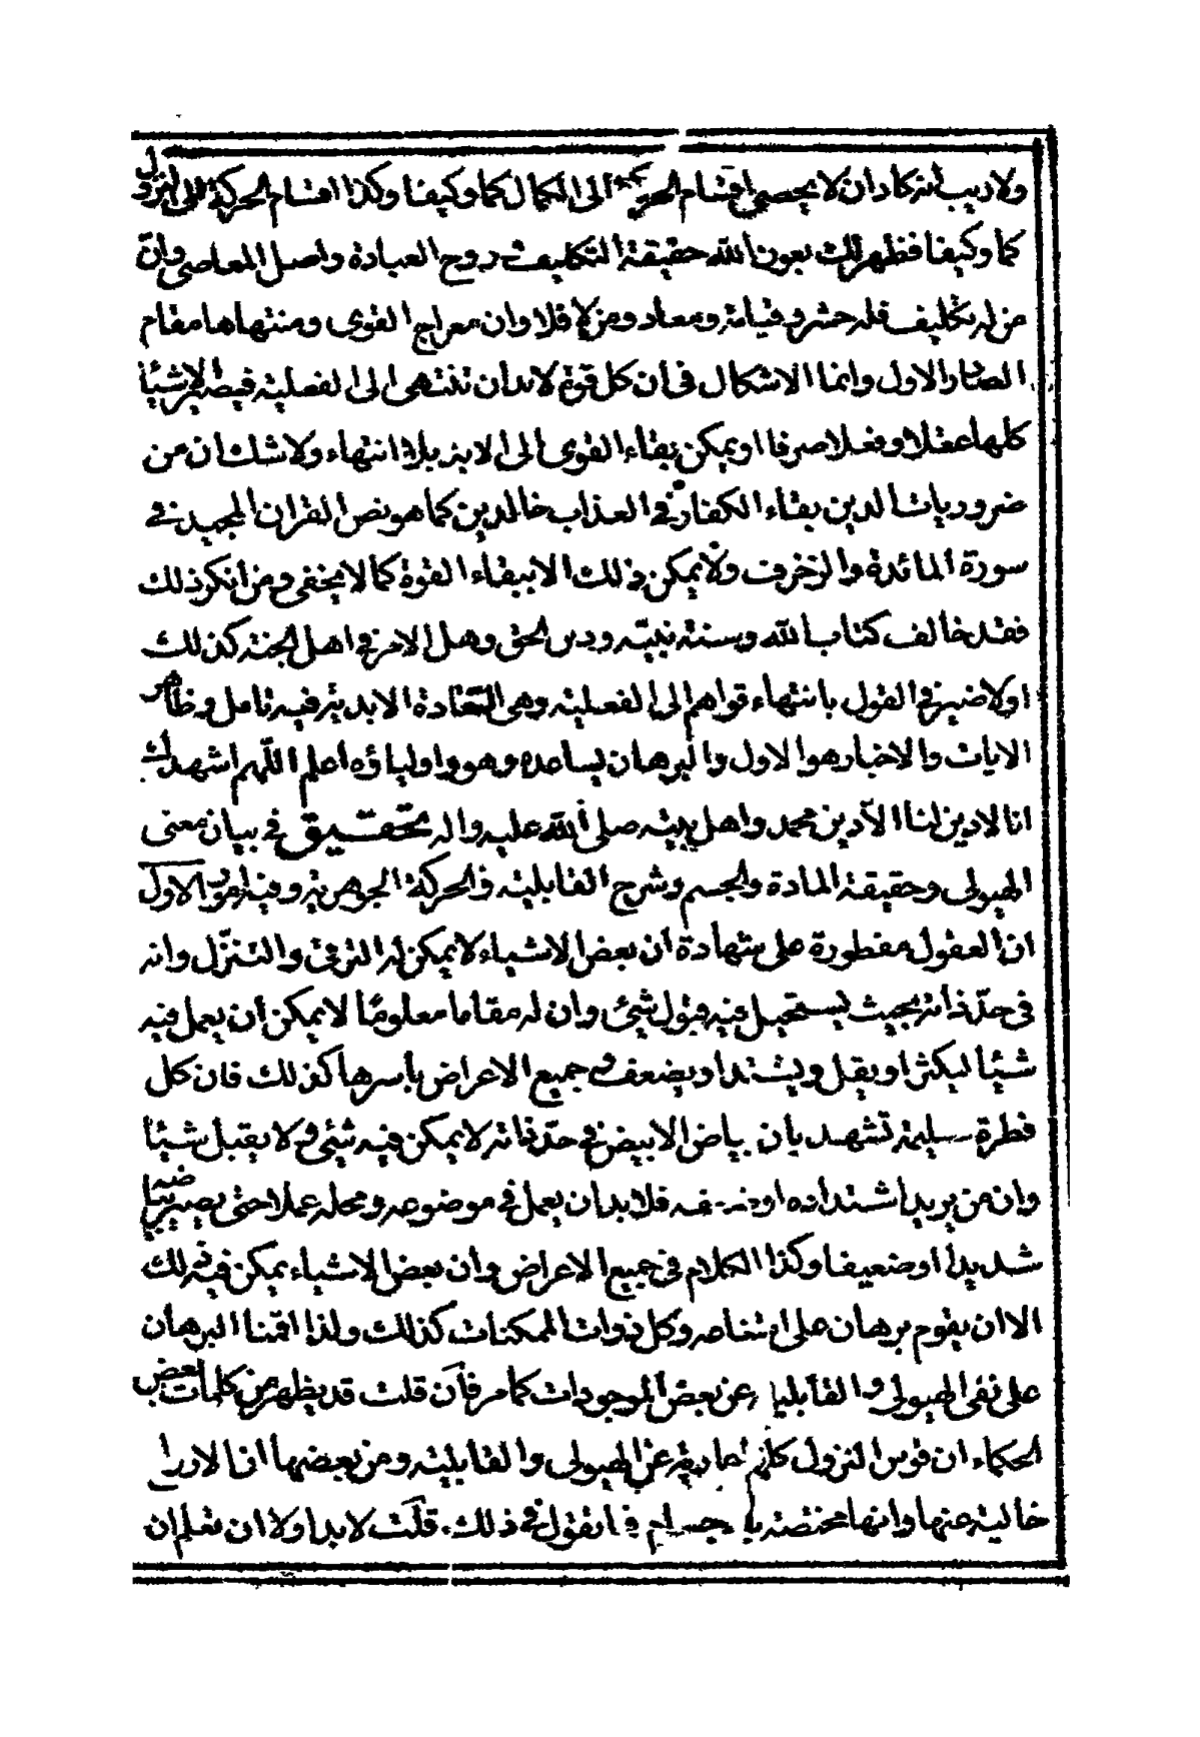 ولاريب انه كاد ان لا يحصى اقسام الحركة الى الكمال كما وكيفا وكذا اقسام الحركة الى النزول
كما وكيفا فظهر لك بعون الله حقيقة التكليف روح العبادة واصل المعاصى وانّ
من له تكليف فله حشر وقيامة ومعاد ومن لا فلا وان معراج القوى ومنتهاها مقام
الصادر الاول وانما الاشكال فى ان كل قوة لابد ان تنتهى الى الفعلية فيصير الاشياء
كلها عقلا وفعلا صرفا او يمكن بقاء القوى الى الابد بلا انتهاء ولا شك ان من
ضروريات الدين بقاء الكفار فى العذاب خالدين كما هو نص القران المجيد فى
سورة المائدة والزخرف ولا يمكن ذلك الا ببقاء القوة كما لا يخفى ومن انكر ذلك
فقد خالف كتاب الله وسنة نبيّه ودين الحق وهل الامر فى اهل الجنة كذلك
اولا ضير فى القول بانتهاء قواهم الى الفعلية وهى السعادة الابدية فيه تامل وظاهر
الايات والاخبار هو الاول والبرهان يساعده وهو واولياؤه اعلم اللّهم اشهدك
انا لا دين لنا الّا دين محمد واهل بيته صلى الله عليه واله تحقيق فى بيان معنى
الهيولى وحقيقة المادة والجسم وشرح القابلية والحركة الجوهرية وفيه امور الاول
ان العقول مفطورة على شهادة ان بعض الاشياء لا يمكن له الترقى والتنزّل وانه
فى حدّ ذاته بحيث يستحيل فيه قبول شيئ وان له مقاما معلومًا لا يمكن ان يعمل فيه
شيئا ليكثر او يقل ويشتد او يضعف و جميع الاعراض باسرها كذلك فان كل
فطرة سليمة تشهد بان بياض الابيض فى حدّ ذاته لا يمكن فيه شيئ ولا يقبل شيئا
وان من يريد اشتداده او ضعفه فلابد ان يعمل فى موضوعه ومحله عملا حتى يصير بياضه
شديدا او ضعيفا وكذا الكلام فى جميع الاعراض وان بعض الاشياء يمكن فيه ذلك
الا ان يقوم برهان على امتناعه وكل ذوات الممكنات كذلك ولذا اقمنا البرهان
على نفى الهيولى والقابليا عن بعض الموجودات كما مر فان قلت قد يظهر من كلمات بعض
الحكماء ان قوس النزول كلّه عارية عن الهيولى والقابلية ومن بعضها ان الادراج
خالية عنها وانها مختصة بالاجسام فما تقول فى ذلك. قلت لابد اولا ان تعلم ان